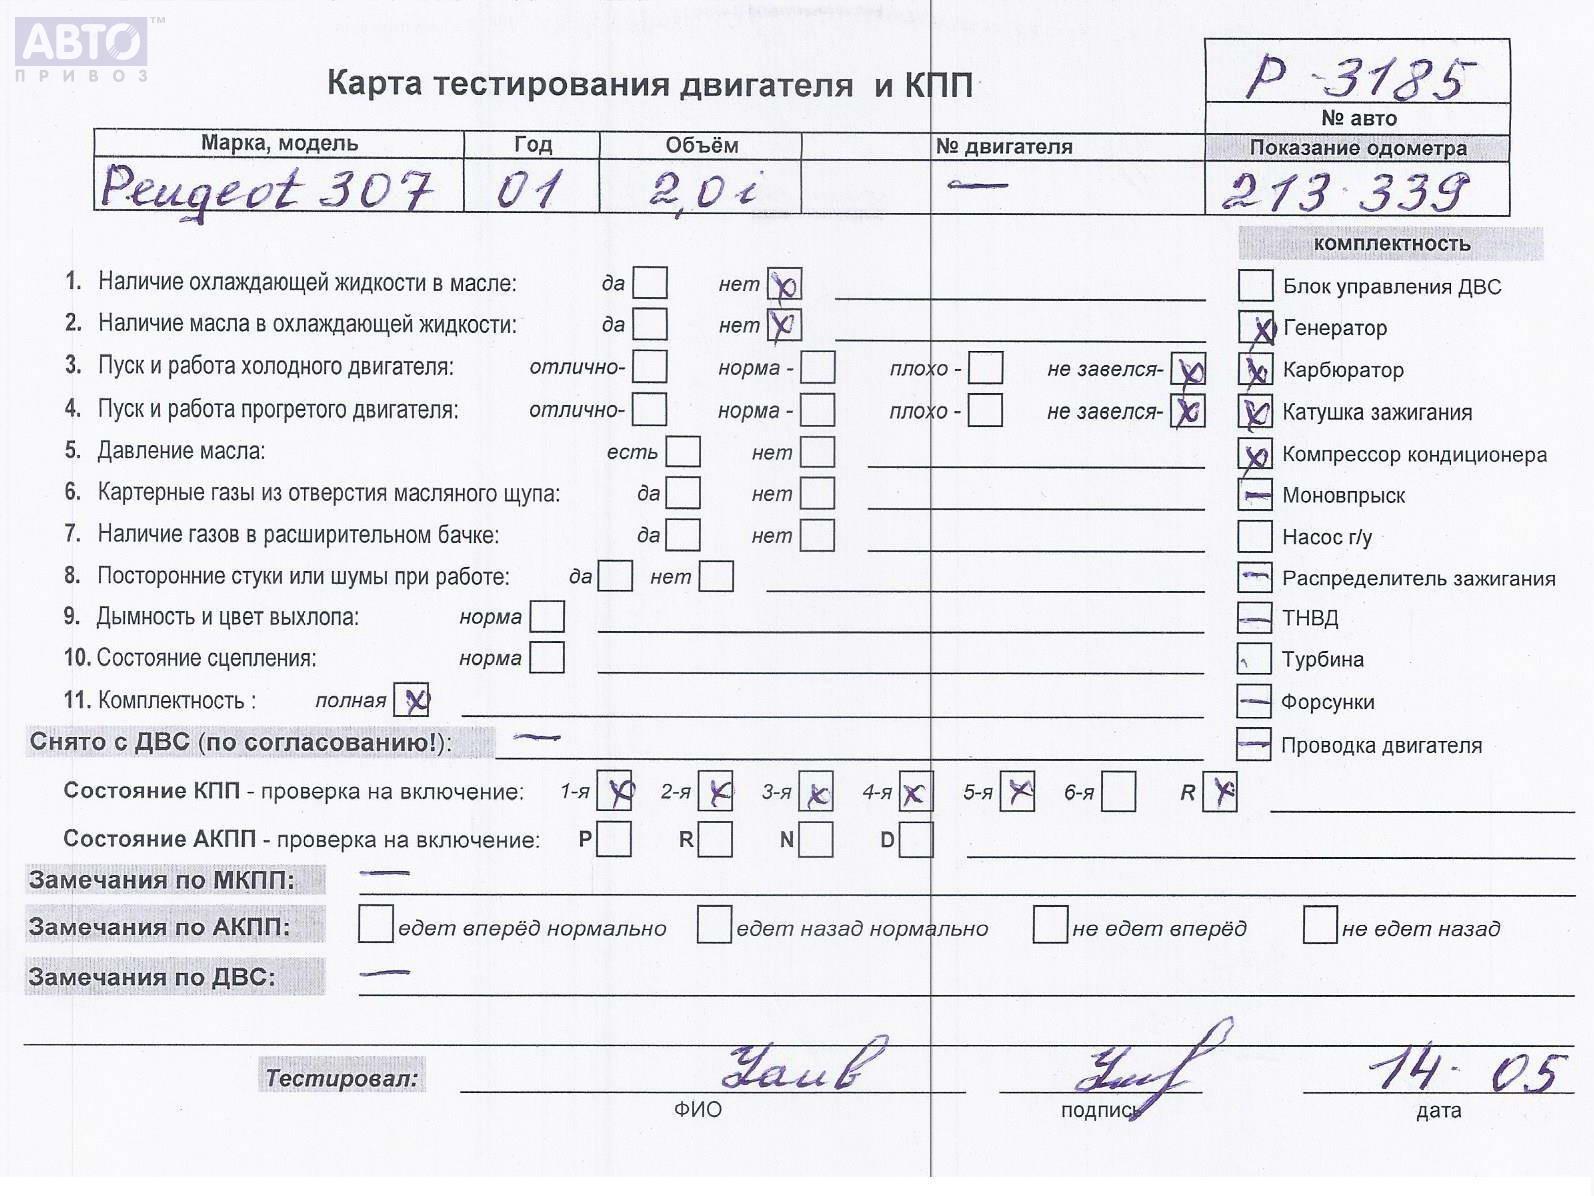 АВТО™
ПРИВОЗ
Карта тестирования двигателя и КПП
Р-3185
№ авто
Марка, модель Год Объём № двигателя Показание одометра
Peugeot 307 01 2,0i — 213 339
комплектность
1. Наличие охлаждающей жидкости в масле: да нет x
Блок управления ДВС
2. Наличие масла в охлаждающей жидкости: да нет x
x Генератор
3. Пуск и работа холодного двигателя: отлично- норма - плохо - не завелся- x
x Карбюратор
4. Пуск и работа прогретого двигателя: отлично- норма - плохо - не завелся- x
x Катушка зажигания
5. Давление масла: есть нет
x Компрессор кондиционера
6. Картерные газы из отверстия масляного щупа: да нет
— Моновпрыск
7. Наличие газов в расширительном бачке: да нет
Насос г/у
8. Посторонние стуки или шумы при работе: да нет
— Распределитель зажигания
9. Дымность и цвет выхлопа: норма
— ТНВД
10. Состояние сцепления: норма
Турбина
11. Комплектность : полная x
— Форсунки
Снято с ДВС (по согласованию!): —
— Проводка двигателя
Состояние КПП - проверка на включение: 1-я x 2-я x 3-я x 4-я x 5-я x 6-я R x
Состояние АКПП - проверка на включение: P R N D
Замечания по МКПП: —
Замечания по АКПП: едет вперёд нормально едет назад нормально не едет вперёд не едет назад
Замечания по ДВС: —
Тестировал: 14. 05
ФИО подпись дата